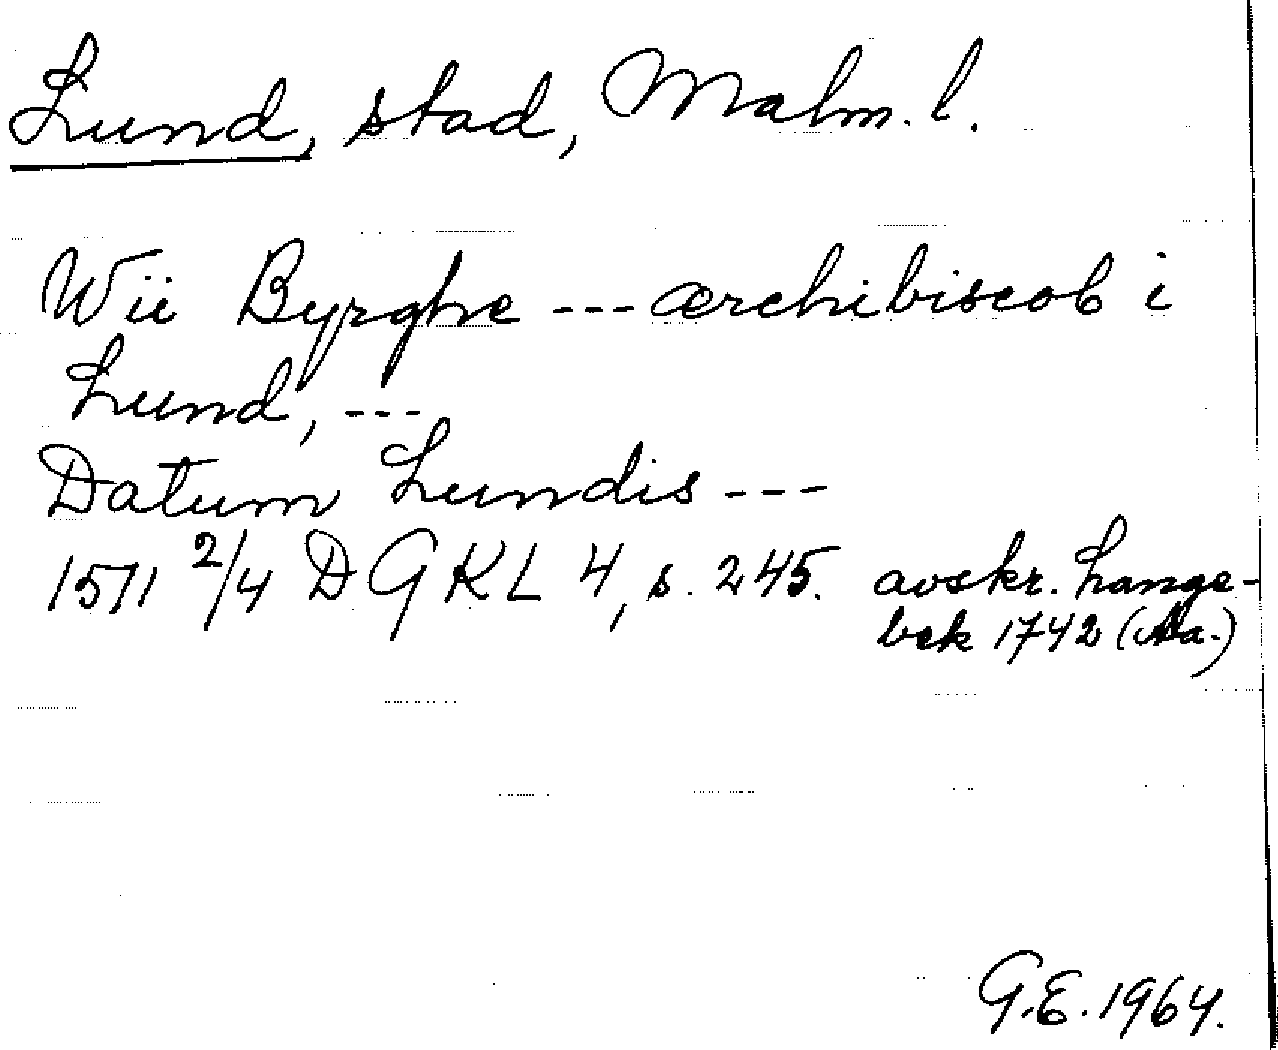 Lund, stad, Malm. l.
Wii Byrghe --- ærchibiscob i
Lund, ---
Datum Lundis ---
1511 2/4 DGKL 4, s. 245. avskr. Lange-
bek 1742 (Aa.)
G.E. 1964.